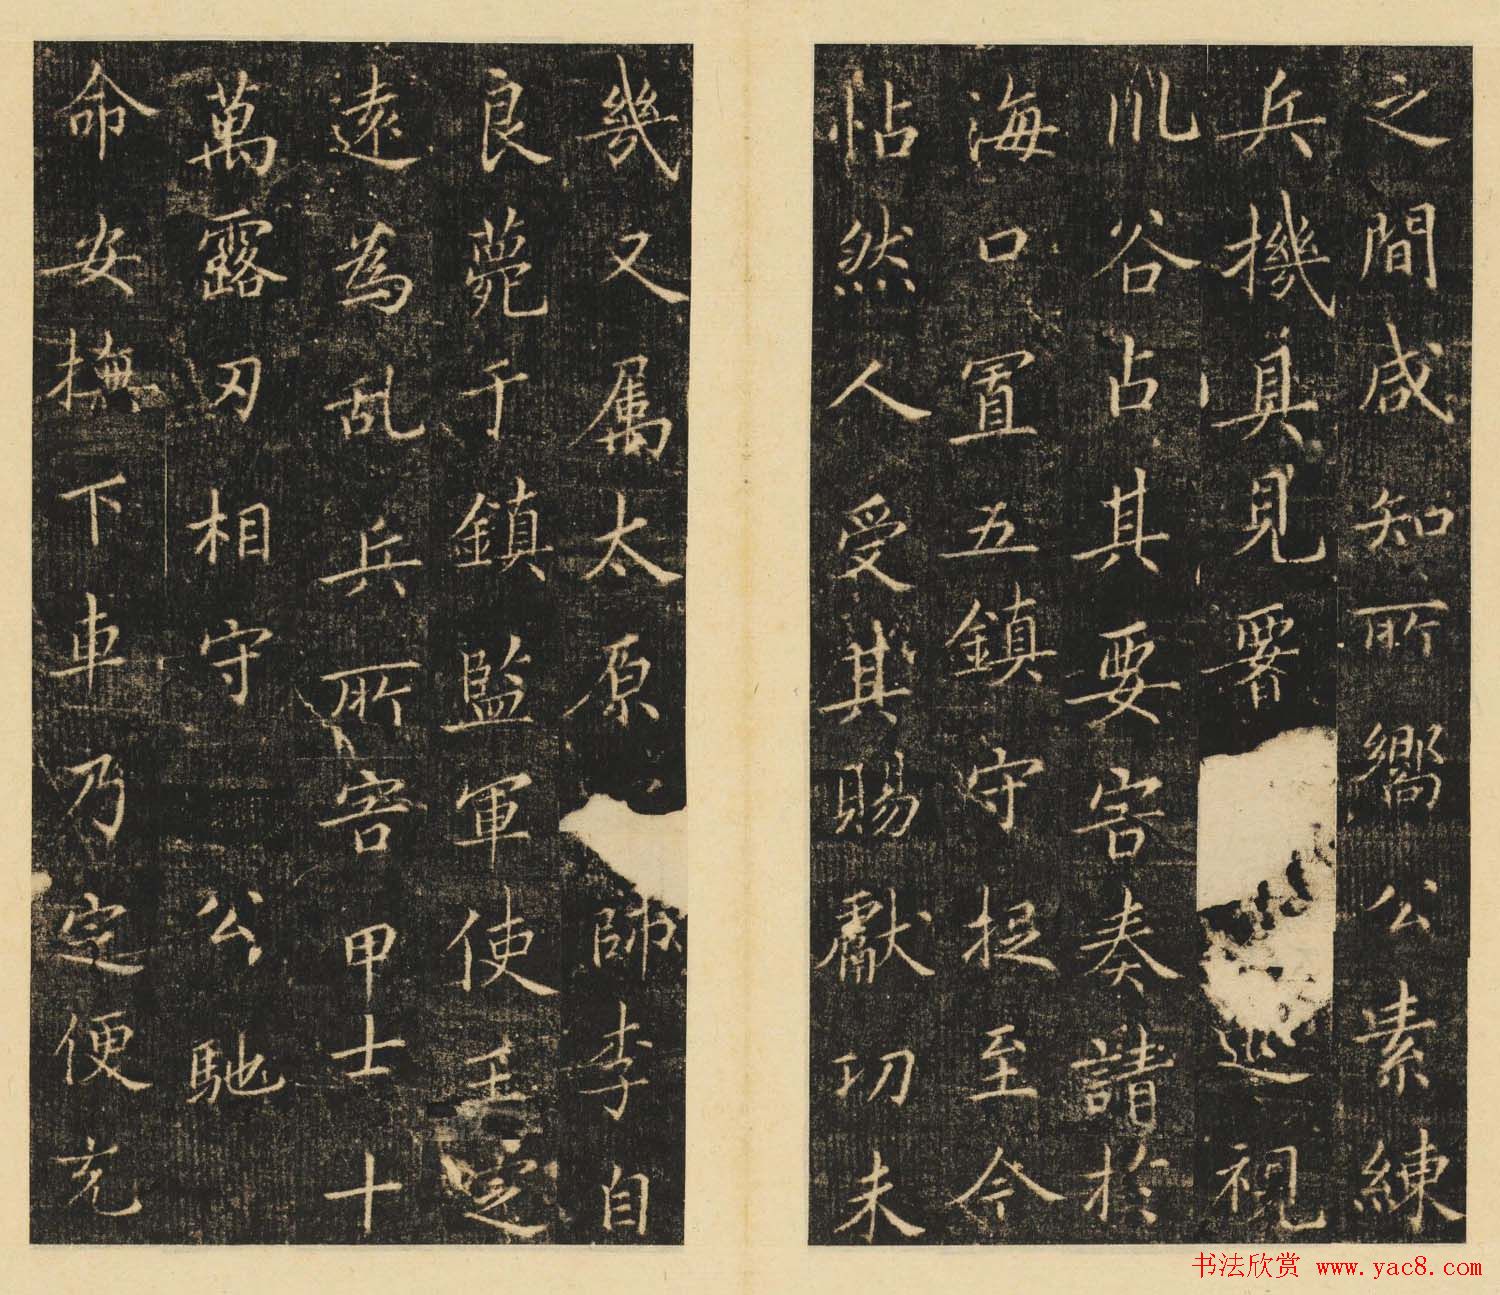 之間咸知所嚮公素練
兵機具見畧巡視
川谷占其要害奏請於
海口置五鎮守捉至今
帖然人受其賜獻功未
幾又屬太原師李自
良薨于鎮監軍使王定
遠為乱兵所害甲士十
萬露刃相守公馳
命安撫下車乃定便充
书法欣赏 www.yac8.com